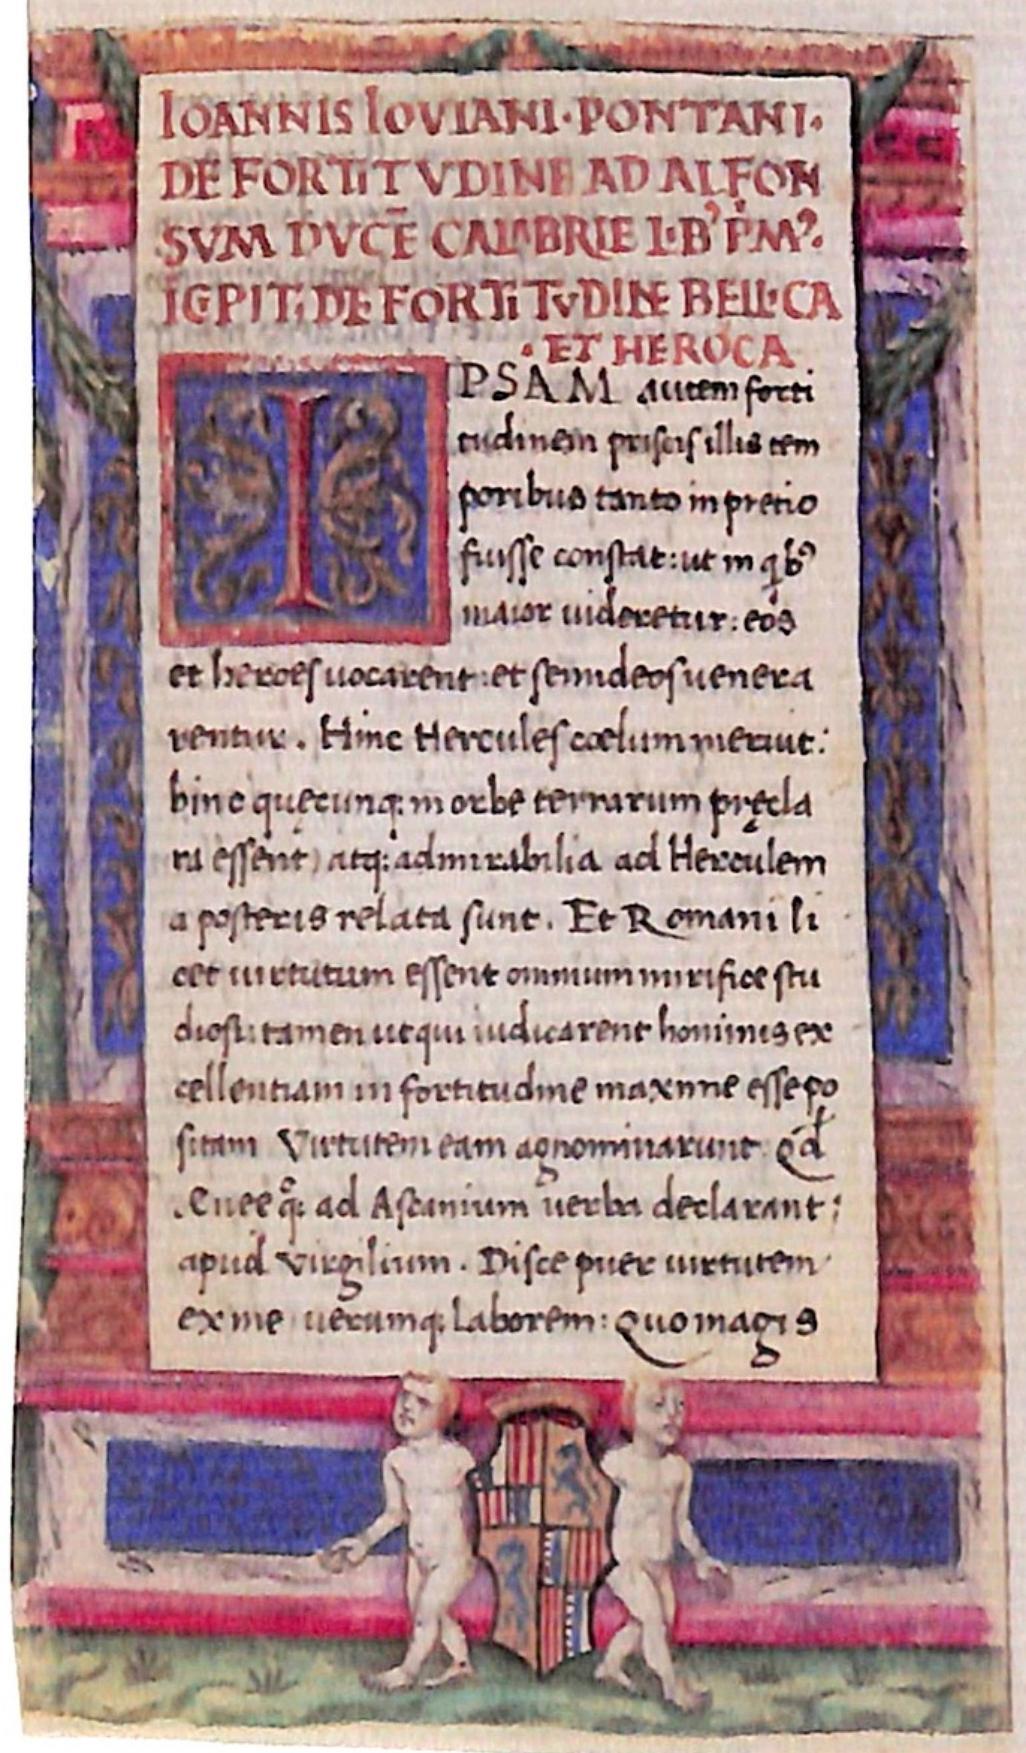 IOANNIS IOVIANI·PONTANI·
DE FORTITVDINE AD ALFON
SVM DVCĒ CALABRIE L·B' P̊M⁹·
ICPIT· DE FORTITVDINE BELLICA
· ET HEROCA
IPSAM autem forti
tudinem priscis illis tem
poribus tanto in pretio
fuisse constat: ut in qb⁹
maior uideretur: eos
et heroes uocarent: et semideos uenera
rentur. Hinc Hercules cœlum meruit:
hinc quęcunq; in orbe terrarum pręcla
ra essent) atq; admirabilia ad Herculem
a posteris relata sunt. Et Romani li
cet uirtutum essent omnium mirifice stu
diosi: tamen ut qui iudicarent hominis ex
cellentiam in fortitudine maxime esse po
sitam Virtutem eam agnominarunt qd
Eneę q°; ad Ascanium uerba declarant:
apud Virgilium. Disce puer uirtutem
ex me uerumq; Laborem: Quo magis